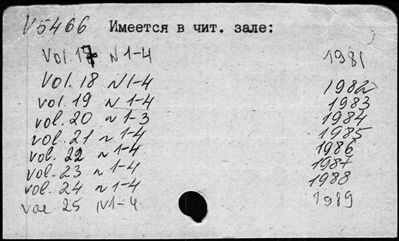 V5466 Имеется в чит. зале:
Vol. 17 N 1-4 1981
Vol. 18 N 1-4 1982
vol. 19 N 1-4 1983
vol. 20 N 1-3 1984
vol. 21 N 1-4 1985
vol. 22 N 1-4 1986
vol. 23 N 1-4 1987
vol. 24 N 1-4 1988
vol 25 N 1-4 1989